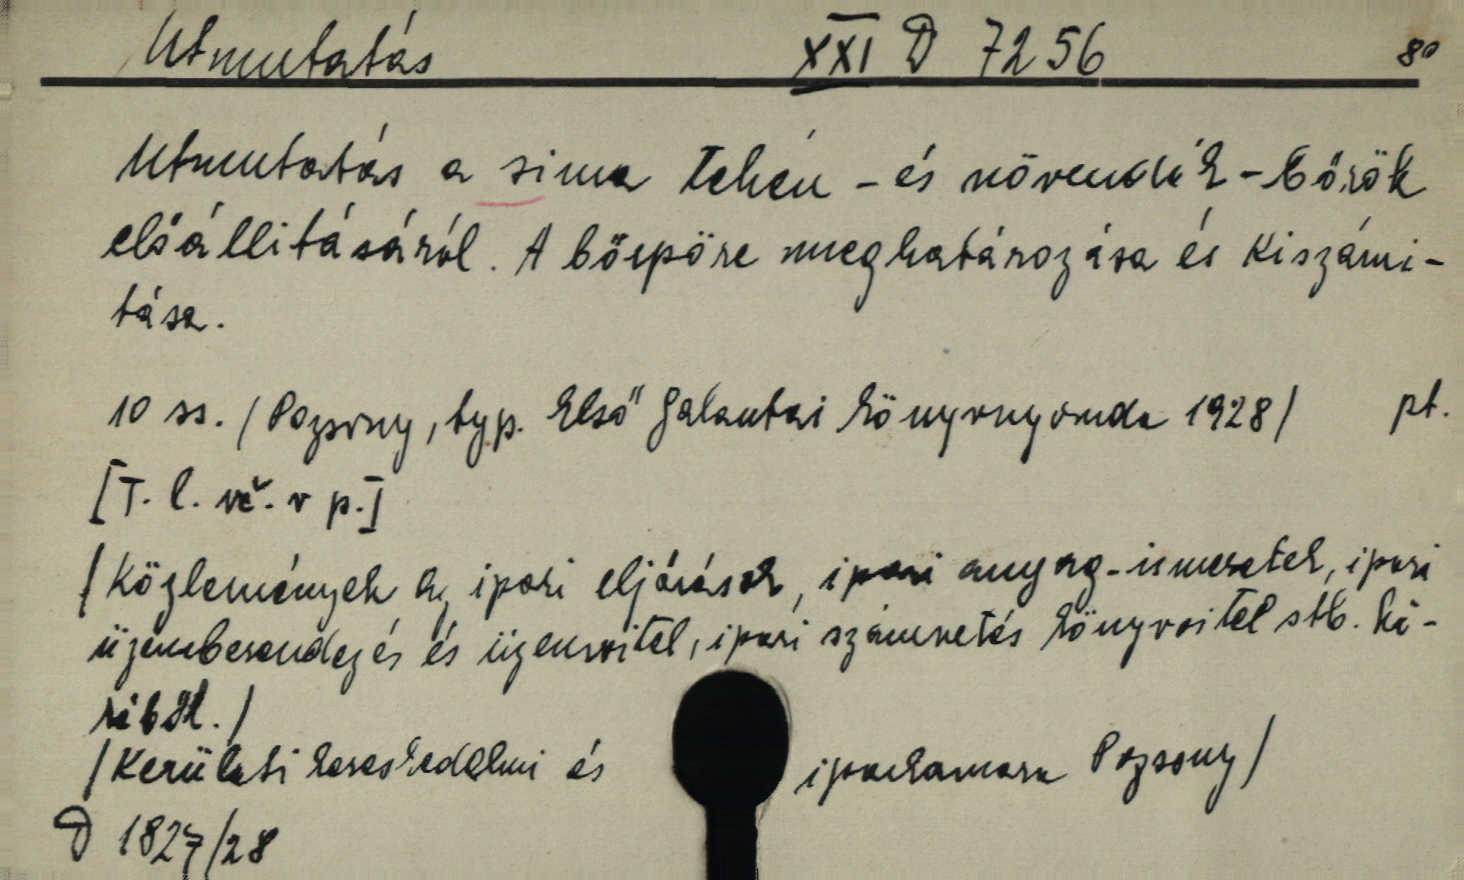 Utmutatás XXI D 7256 8°
Utmutatás a sima tehén - és növendék - bőrök
előállitásáról. A bőrpőre meghatározása és kiszámi-
tása.
10 ss. / Pozsony, typ. Első Galantai könyvnyomda 1928 / pt.
[T. l. vč. v p.]
/ Közlemények az ipari eljárások, ipari anyag-ismeretek, ipari
üzemberendezés és üzemvitel, ipari számvetés könyvvitel stb. kö-
réből. /
/ Kerületi kereskedelmi és iparkamara Pozsony /
D 1827/28